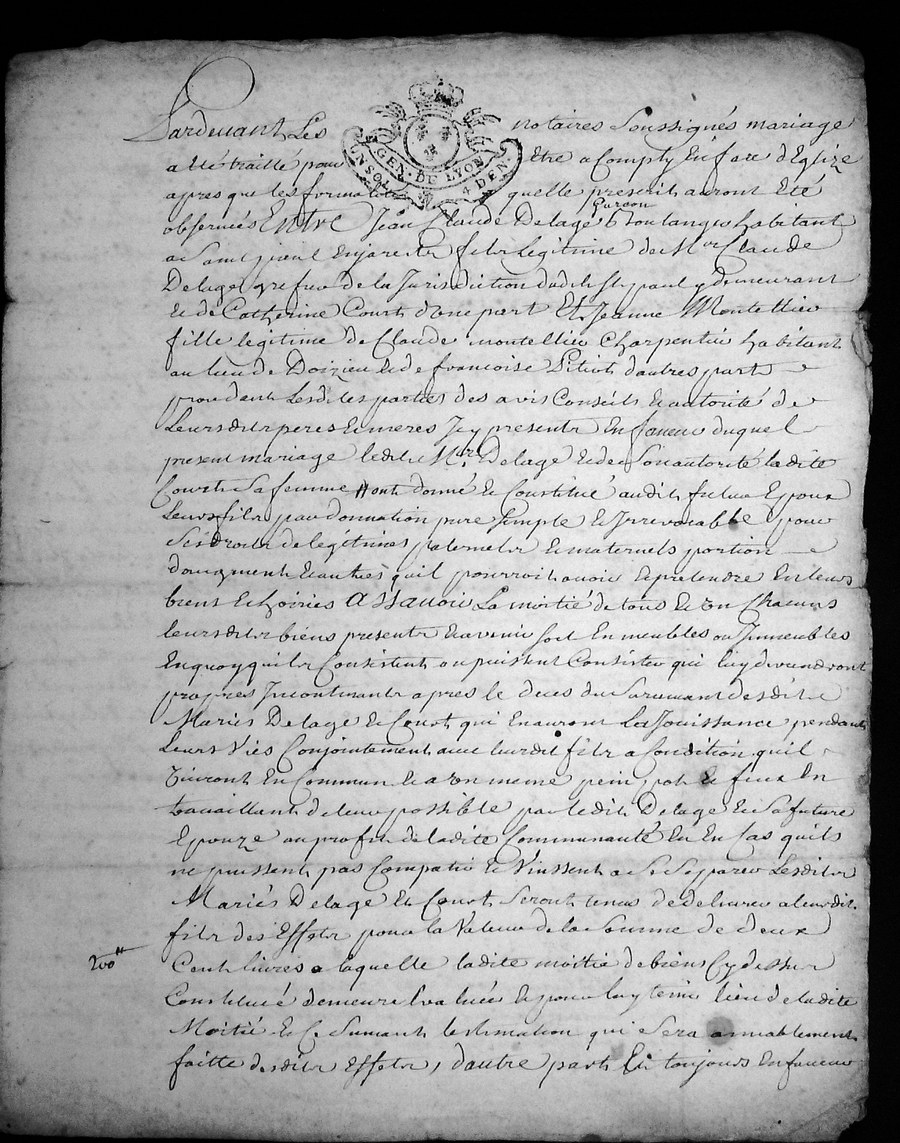 Pardevant Les notaires Soussignés mariage
GEN. DE LYON
4 DEN.
a eté traitté pour Etre accomply En face d'Eglize
apres que les formalités quelle prescrit auront Eté
garçon
observées Entre Jean Claude Delage Boulanger habitant
a Saint paul Enjarest fils legitime de Mr Claude
Delage greffier de la Jurisdiction dudit St paul y demeurant
et de Catherine Court d'une part Et Jeanne Montellier
fille legitime de Claude montellier Charpentier habitant
au lieu de Doizieu et de francoise Pitiot d'autres part
procedant lesdites parties des avis Conseils et autorité de
Leursdits peres et meres Icy presents En faveur duquel
present mariage ledit Mr Delage et de son autorité ladite
Court sa femme ont donné et Constitué audit futur Epoux
leur fils par donnation pure simple et Irrevocable pour
ses droits de légitimes paternels et maternels portion
d'augment et autres quil pourroit avoir et pretendre En leurs
biens et hoiries Assavoir La moitié de tous et un Chacuns
leursdits biens presents et avenir soit En meubles ou Immeubles
En quoy quils Consistent ou puissent Consister qui luy deviendront
propres Incontinant apres le deces du survivant desdits
Mariés Delage et Court qui En auront La Jouissance pendant
Leurs Viés Conjointement avec leurdit fils a Condition quil
Vivront En Commun et a un meme pain pot et feux En
travaillant de leur possible par ledit Delage et sa future
Epouze au profit de ladite Communauté Et En Cas quils
ne puissent pas Compatir et Vinssent a se separer Lesdits
Mariés Delage et Court seront tenus de delivrer a leurdit
fils des Effets pour la Valeur de la somme de deux
200ll
Cent livres a laquelle ladite moitié de biens Cy dessus
Constitué demeure Evaluée Et pour luy tenir lieu de ladite
Moitié et Ce suivant lestimation qui sera amiablement
faitte desdits Effets, d'autre part Et toujours En faveur